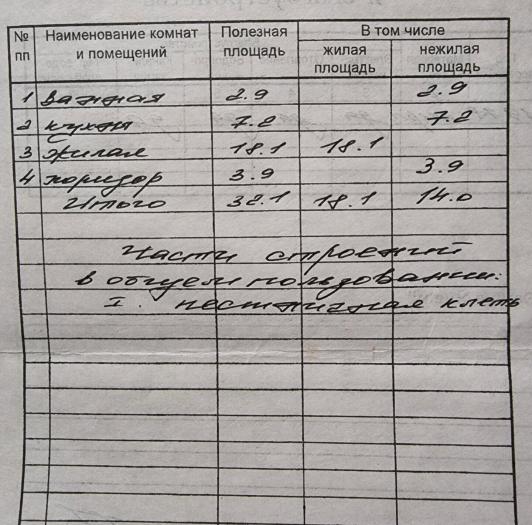 № пп Наименование комнат и помещений Полезная площадь В том числе жилая площадь нежилая площадь
1 ванная 2.9 2.9
2 кухня 7.2 7.2
3 жилая 18.1 18.1
4 коридор 3.9 3.9
Итого 32.1 18.1 14.0
Части строений
в общем пользовании:
I. лестничная клеть